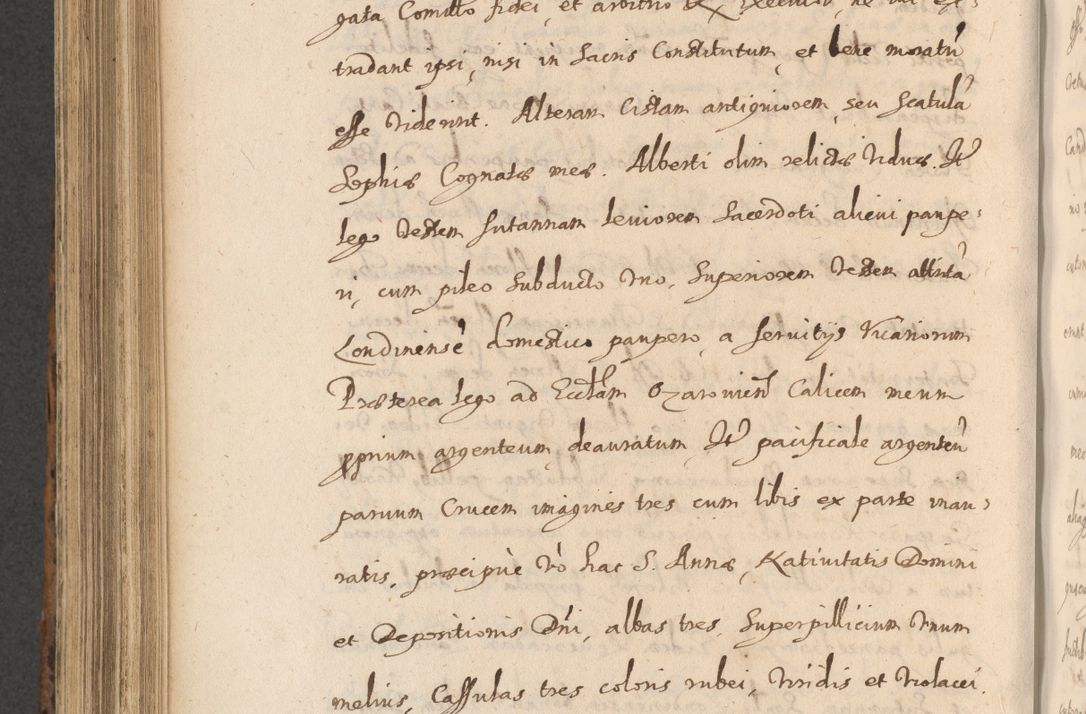 gata Comitto fidei, et arbitrio
tradant ipsi, nisi in Sacris Constitutum, et bene moratũ
esse viderint. Alteram Cistam antiquiorem, seu scatulã
Sophiæ Cognatæ meæ. Alberti olim relictæ viduæ. Itẽ
lego vestem sutannam leviorem Sacerdoti alicui paupe-
ri, cum pileo subducto vno, Superiorem vestem attritã
Londinensẽ domestico paupero, a servitijs Vicariorum
Præterea lego ad Eccłam Ozarovien̄ Calicem meum
proprium argenteum, deauratum, Itẽ pacificale argenteũ
parvum Crucem imagines tres cum libis ex parte inau-
ratis, præcipuè vò hac S. Annæ, Nativitatis Domini
et Depositionis Dñi, albas tres, Superpillicium vnum
melius, Cassulas tres coloris rubei, viridis et violacei.